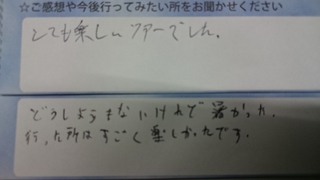 ☆ご感想や今後行ってみたい所をお聞かせください
とても楽しいツアーでした。
どうしようもないけれで暑かった。
行った所はすごく楽しかたです。